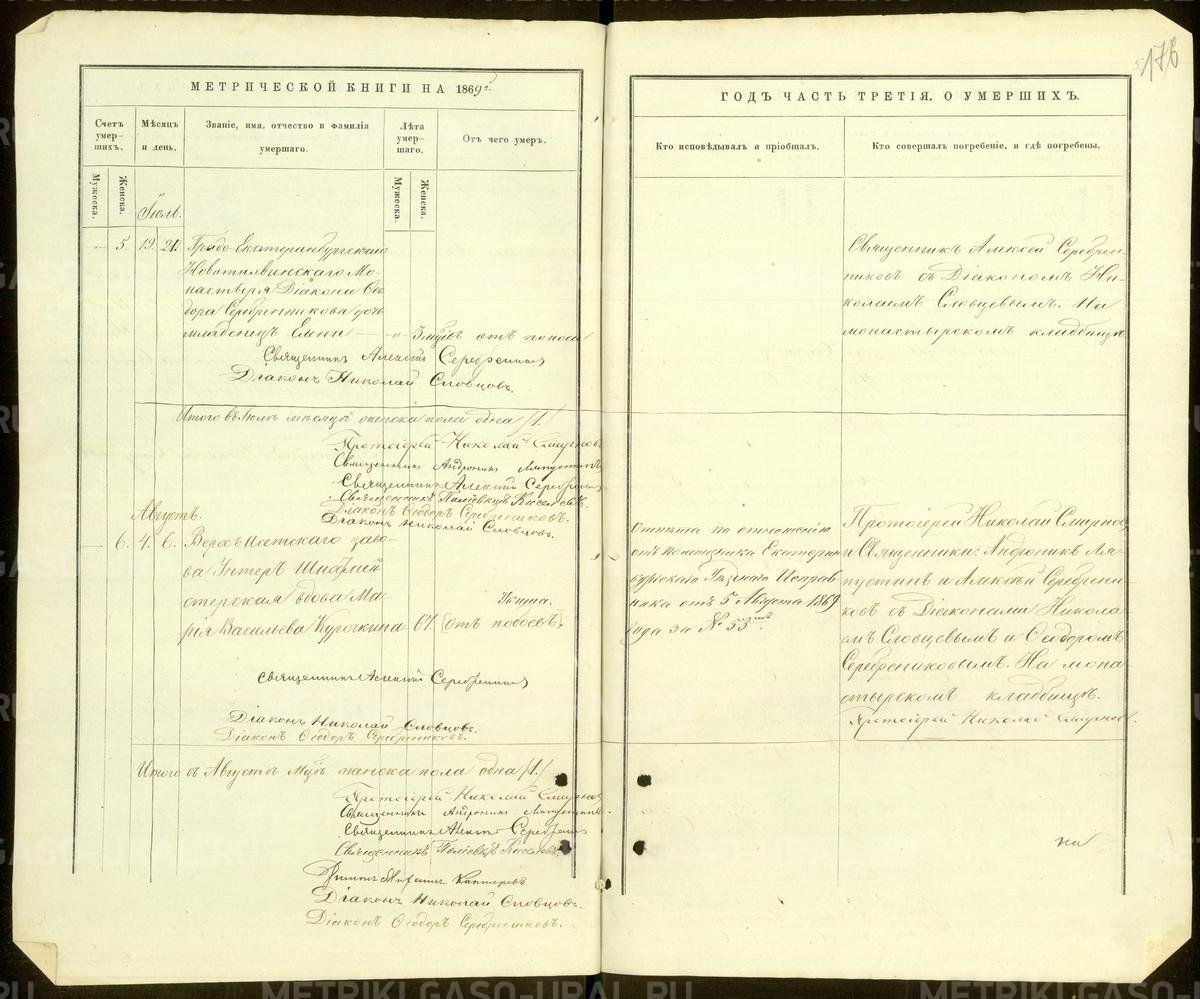 176
МЕТРИЧЕСКОЙ КНИГИ НА 1869й
ГОДЪ ЧАСТЬ ТРЕТІЯ, О УМЕРШИХЪ.
Счетъ умер-
шихъ.
Мѣсяцъ
и день.
Званіе, имя, отчество и фамилія
умершаго.
Лѣта
умер-
шаго.
Отъ чего умеръ.
Кто исповѣдывалъ и пріобщалъ.
Кто совершалъ погребеніе, и гдѣ погребены.
Мужеска.
Женска.
Мужеска.
Женска.
Іюль.
5. 19. 21. Градо-Екатеринбургскаго
Новотихвинскаго Мо-
настыря Діакона Ѳео-
дора Серебренникова дочь
младенецъ Елена — „ 3 мцвъ отъ поноса
Священникъ Алексей Серебрен-
никовъ съ Діакономъ Ни-
колаемъ Словцевымъ. На
монастырскомъ кладбищѣ.
Священникъ Алексій Серебрениковъ
Діаконъ Николай Словцовъ.
Итого въ Іюлѣ мѣсяцѣ женска пола одна /1./
Протоіерей Николай Смирновъ
Священникъ Андроникъ Ляпустинъ
Священникъ Алексій Серебрениковъ
Священникъ Киселевъ.
Діаконъ Ѳеодоръ Серебрениковъ.
Діаконъ Николай Словцовъ.
Августъ.
6. 4. 6. Верхъ-Исетскаго заво-
да Унтеръ Шихмей
стерская вдова Ма-
рія Васильева Курочкина 67. Убита.
[отъ побоевъ].
Отпѣта по отношенію
Екатерин
бургскаго Уѣзднаго Исправ
ника отъ 5 Августа 1869
года за № 55мъ.
Протоіерей Николай Смирновъ
и Священники: Андроникъ Ля-
пустинъ и Алексѣй Серебрени-
ковъ съ Діаконами Никола
емъ Словцевымъ и Ѳеодоромъ
Серебрениковымъ. На мона
стырскомъ кладбищѣ.
Протоіерей Николай Смирновъ.
Священникъ Алексій Серебрениковъ
Діаконъ Николай Словцовъ.
Діаконъ Ѳеодоръ Серебрениковъ.
Итого въ Августѣ мцѣ женска пола одна /1./
Протоіерей Николай Смирновъ
Священникъ Андроникъ Ляпустинъ.
Священникъ Алексій Серебрениковъ
Священникъ Киселевъ.
Діаконъ Николай Словцовъ.
Діаконъ Ѳеодоръ Серебрениковъ.
METRIKI.GASO-URAL.RU